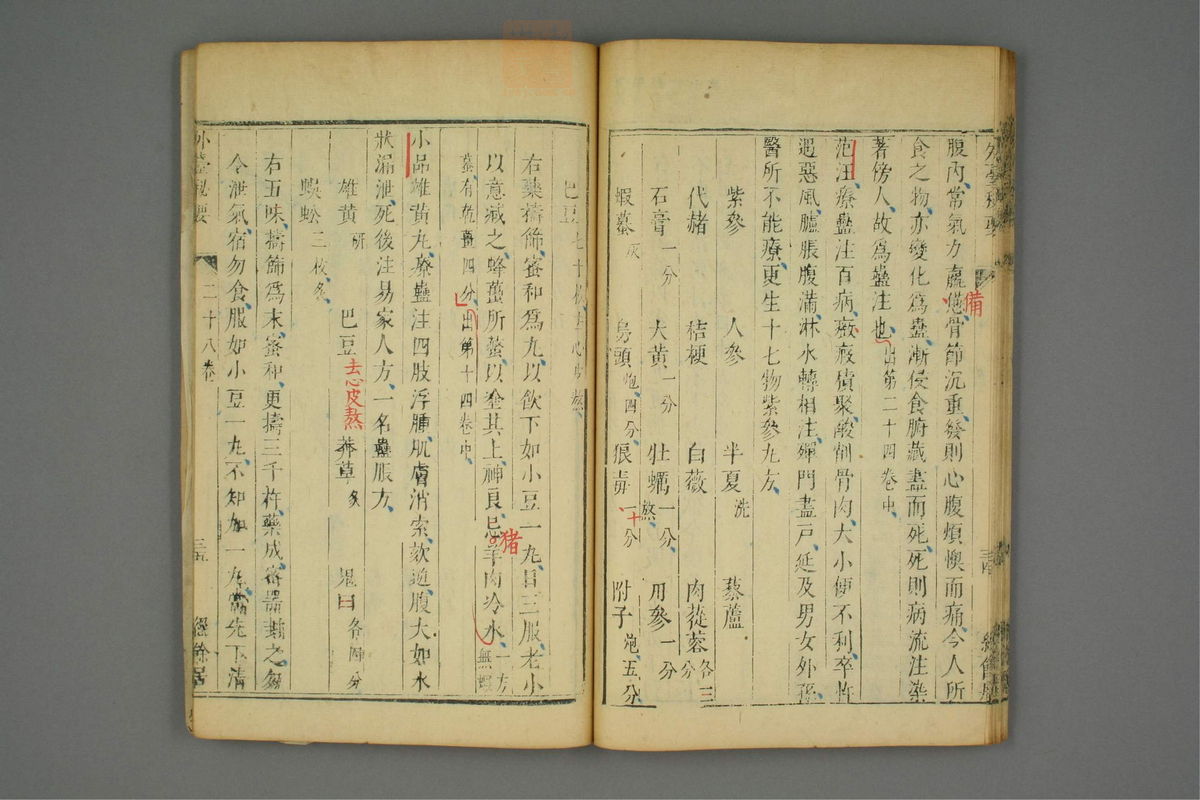 外臺秘要
腹內常氣力羸憊骨節沉重發則心腹煩懊而痛令人所
備
食之物亦變化爲蠱漸侵食腑藏盡而死死則病流注染
著傍人故爲蠱注也出第二十四卷中
范汪療蠱注百病癥瘕積聚酸削骨肉大小便不利卒忤
遇惡風臚脹腹滿淋水轉相注殫門盡戶延及男女外孫
醫所不能療更生十七物紫參丸方
紫參 人參 半夏洗 藜蘆
代赭 秸梗 白薇 肉蓯蓉各三分
石膏一分 大黃一分 牡蠣一分熬 丹參一分
蝦蟇灰 烏頭炮四分 狼毒一分 附子炮五分
十
巴豆七十枚去心皮熬
右藥擣篩蜜和爲丸以飲下如小豆一丸日三服老小
以意減之蜂蠆所螫以塗其上神良忌羊肉冷水一方無蝦
猪
蟇有乾薑四分出第十四卷中
小品雄黃丸療蠱注四肢浮腫肌膚消索欬逆腹大如水
狀漏泄死後注易家人方一名蠱脹方
雄黃研 巴豆 莽草炙 鬼臼各四分
去心皮熬
蜈蚣二枚炙
右五味擣篩爲末蜜和更擣三千杵藥成密器封之勿
令泄氣宿勿食服如小豆一丸不知加一丸當先下清
外臺秘要 二十八卷 三五 經餘居